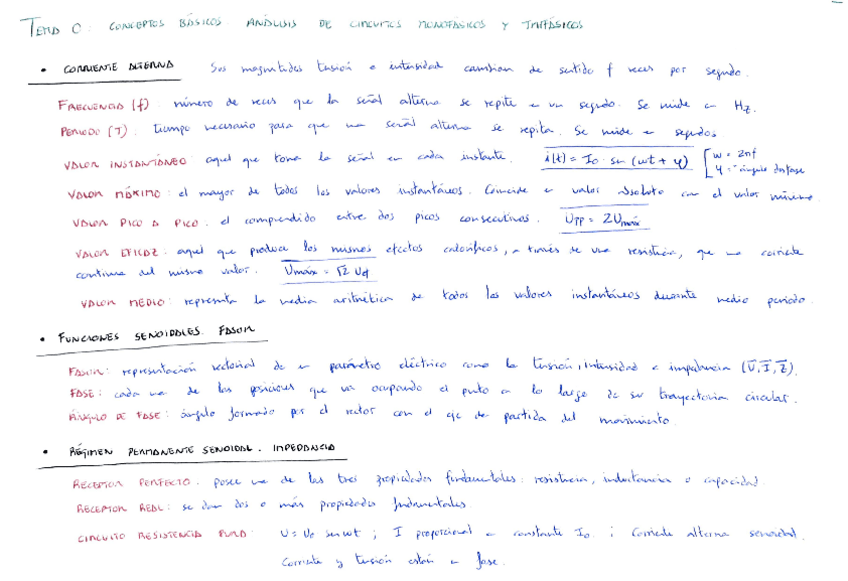 TEMA 0: CONCEPTOS BÁSICOS. ANÁLISIS DE CIRCUITOS MONOFÁSICOS Y TRIFÁSICOS
• CORRIENTE ALTERNA Sus magnitudes tensión o intensidad cambian de sentido f veces por segundo.
FRECUENCIA (f): número de veces que la señal alterna se repite en un segundo. Se mide en Hz.
PERIODO (T): tiempo necesario para que una señal alterna se repita. Se mide en segundos
VALOR INSTANTÁNEO: aquel que toma la señal en cada instante. i(t) = Io · sen (wt + φ) [ w = 2πf
φ = ángulo desfase
VALOR MÁXIMO: el mayor de todos los valores instantáneos. Coincide en valor absoluto con el valor mínimo
VALOR PICO A PICO: el comprendido entre dos picos consecutivos. Upp = 2Umáx
VALOR EFICAZ: aquel que produce los mismos efectos caloríficos, a través de una resistencia, que una corriente
continua del mismo valor. Umáx = √2 Uef
VALOR MEDIO: representa la media aritmética de todos los valores instantáneos durante medio periodo.
• FUNCIONES SENOIDALES. FASOR
FASOR: representación vectorial de un parámetro eléctrico como la tensión, intensidad e impedancia (U̅, I̅, Z̅).
FASE: cada una de las posiciones que va ocupando el punto a lo largo de su trayectoria circular.
ÁNGULO DE FASE: ángulo formado por el vector con el eje de partida del movimiento.
• RÉGIMEN PERMANENTE SENOIDAL. IMPEDANCIA
RECEPTOR PERFECTO: posee una de las tres propiedades fundamentales: resistencia, inductancia o capacidad.
RECEPTOR REAL: se dan dos o más propiedades fundamentales.
CIRCUITO RESISTENCIA PURA: U = Uo sen wt ; I proporcional a constante Io ; Corriente alterna senoidal.
Corriente y tensión están en fase.